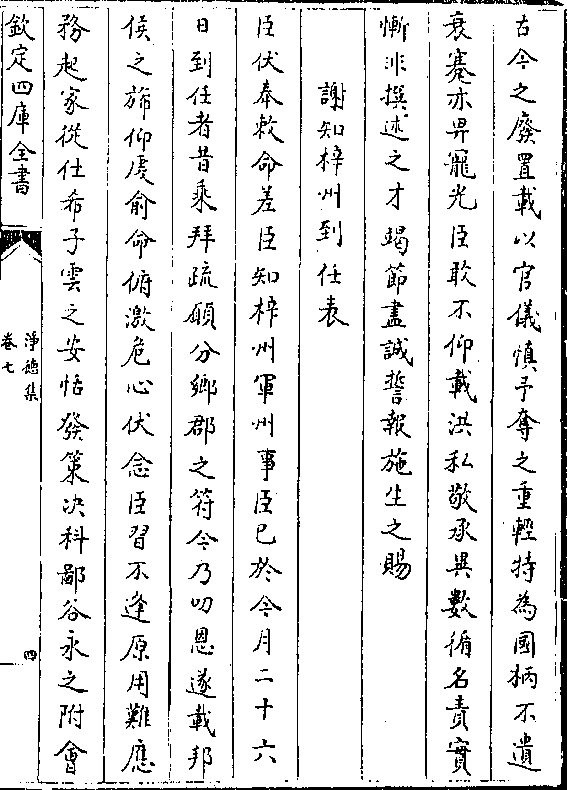 古今之廢置載以官儀慎予奪之重輕持為國柄不遺
衰蹇亦畀寵光臣敢不仰載洪私敬承異數循名責實
慚非撰述之才竭節盡誠誓報施生之賜
謝知梓州到任表
臣伏奉敕命差臣知梓州軍州事臣已於今月二十六
日到任者昔乘拜疏願分鄉郡之符今乃叨恩遂載邦
侯之旆仰虔俞命俯激危心伏念臣習不逢原用難應
務起家從仕希子雲之安恬發策决科鄙谷永之附會
欽定四庫全書
淨德集
卷七
四